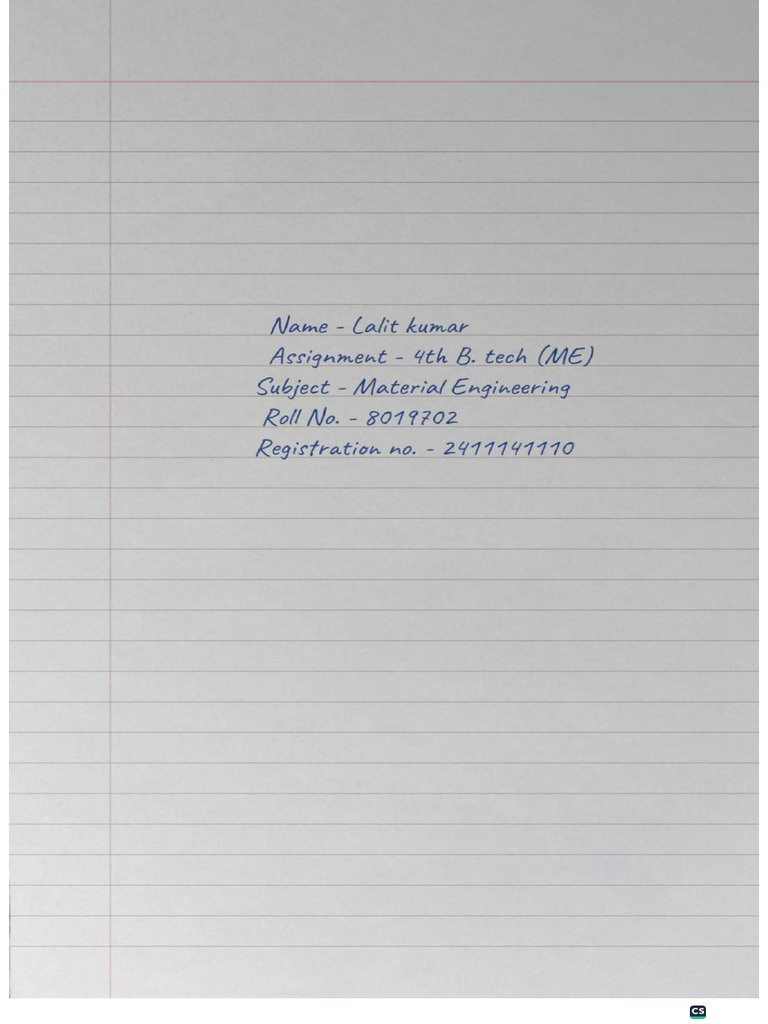 Name - Lalit kumar
Assignment - 4th B. tech (ME)
Subject - Material Engineering
Roll No. - 8019702
Registration no. - 2411141110
CS